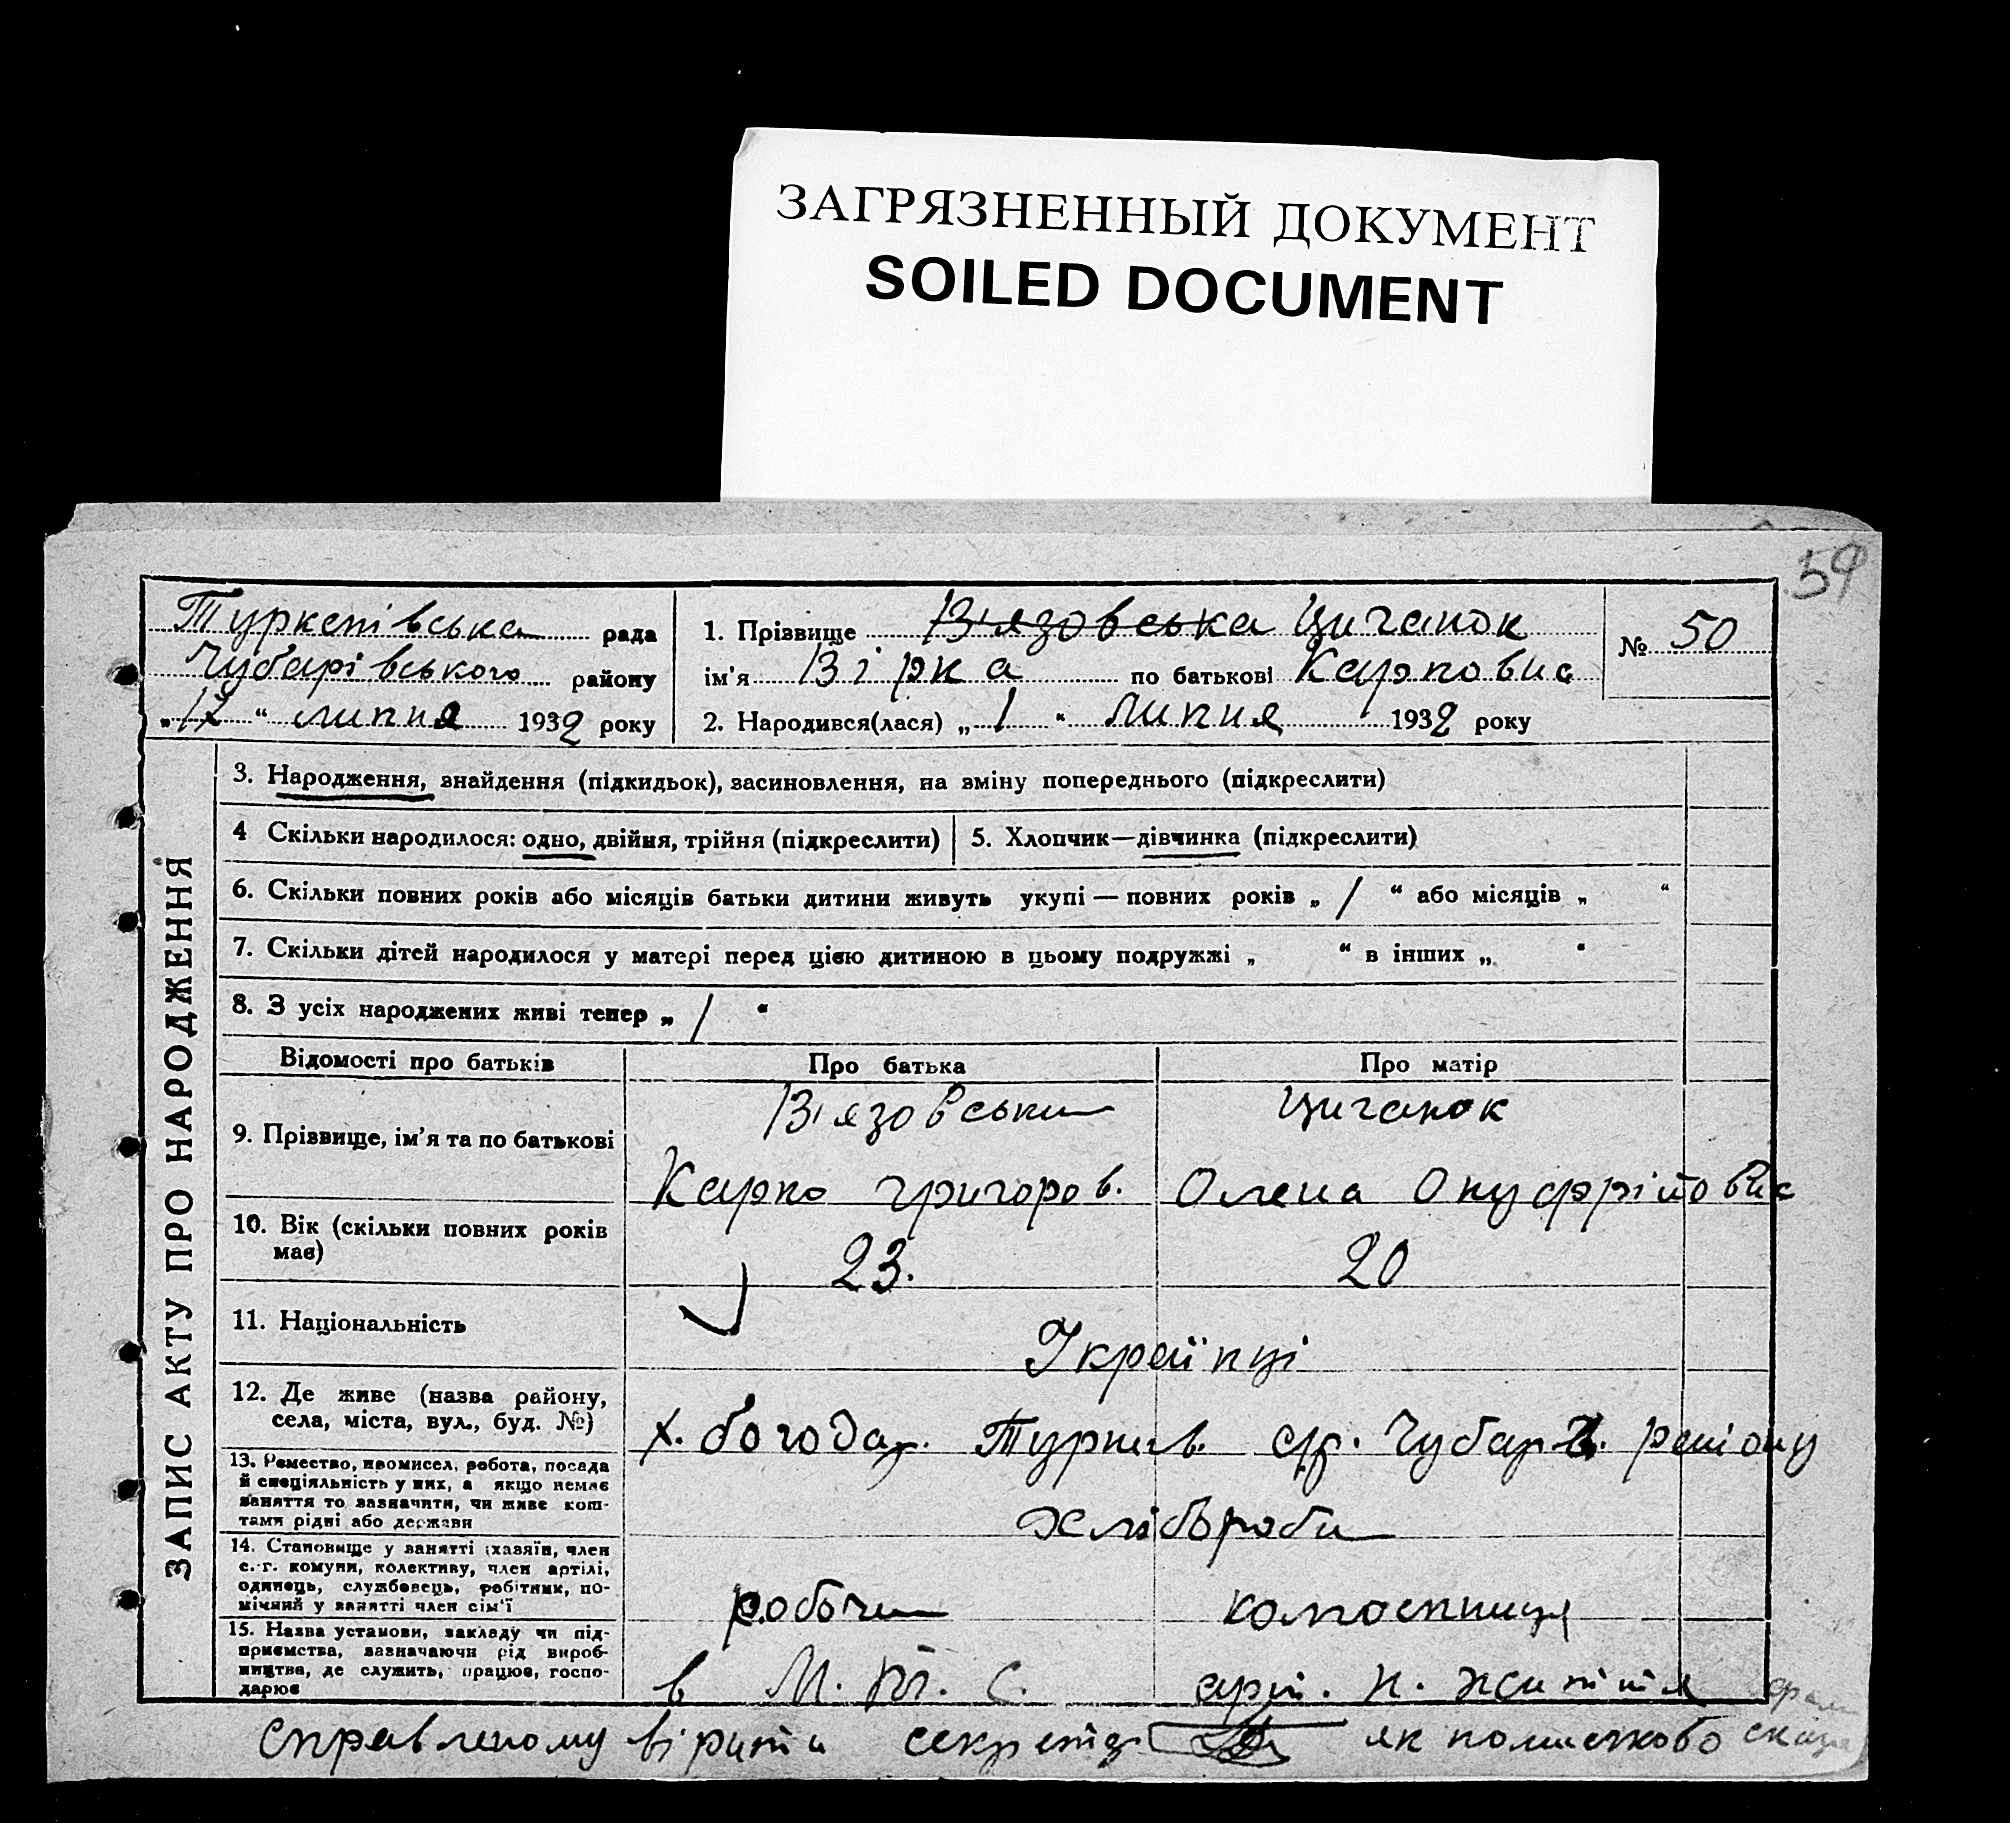 ЗАГРЯЗНЕННЫЙ ДОКУМЕНТ
SOILED DOCUMENT
59
Туркенівська рада
Чубарівського району
„ 12 “ липня 1932 року
1. Прізвище В'язовська Циганок
ім'я Вірка по батькові Карповна
2. Народився(лася) „ 1 “ липня 1932 року
№ 50
ЗАПИС АКТУ ПРО НАРОДЖЕННЯ
3. Народження, знайдення (підкидьок), засиновлення, на зміну попереднього (підкреслити)
4 Скільки народилося: одно, двійня, трійня (підкреслити)
5. Хлопчик—дівчинка (підкреслити)
6. Скільки повних років або місяців батьки дитини живуть укупі — повних років „ / “ або місяців „ “
7. Скільки дітей народилося у матері перед цією дитиною в цьому подружжі „ “ в інших „ “
8. З усіх народжених живі тепер „ / “
Відомості про батьків
Про батька
Про матір
9. Прізвище, ім'я та по батькові
В'язовськи
Карпо Григоров.
Циганок
Олена Онуфрійовна
10. Вік (скільки повних років має)
23.
20
11. Національність
Українці
12. Де живе (назва району, села, міста, вул., буд. №)
х. богодар. Туркен. с/р. Чубар. району
13. Ремество, промисел, робота, посада й спеціяльність у них, а якщо немає заняття то зазначити, чи живе коштами рідні або держави
хлібороби
14. Становище у занятті (хазяїн, член с.-г. комуни, колективу, член артілі, одинець, службовець, робітник, помічний у занятті член сім'ї
робочи
колгоспниця
15. Назва установи, закладу чи підприємства, зазначаючи рід виробництва, де служить, працює, господарює
в М. Т. С.
арт. н. життя
справленому вірити секретар як помилково